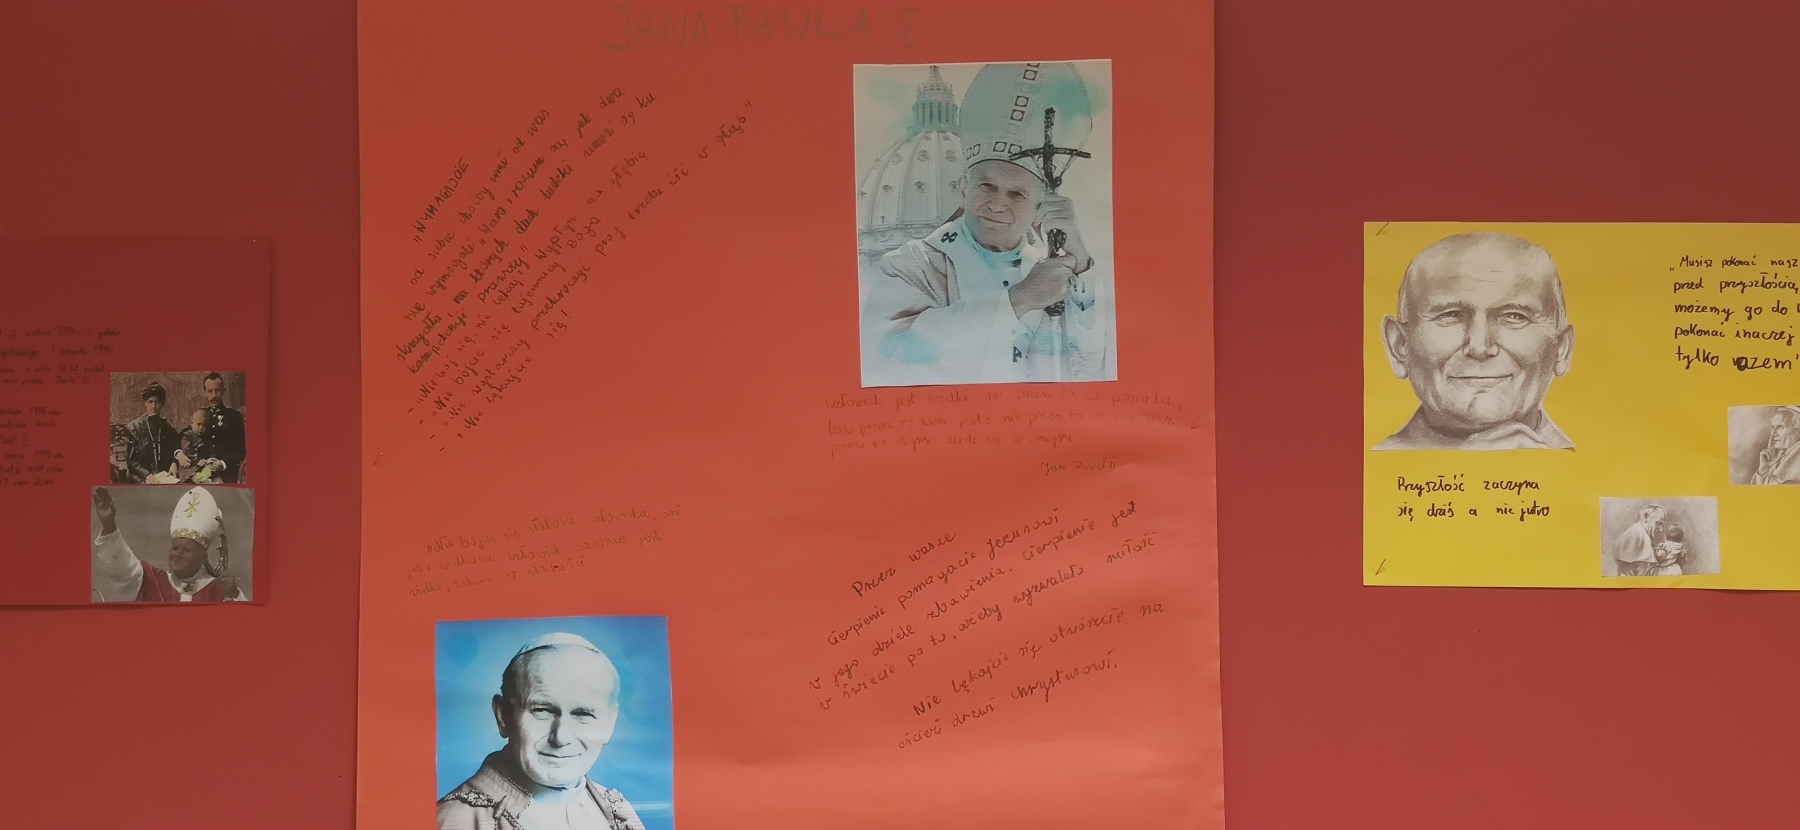 JANA PAWŁA II
„WYMAGAJCIE
od siebie choćby inni od was
nie wymagali" „Wiara, rozum są jak dwa
skrzydła, na których duch ludzki unosi się ku
kontemplacji prawdy"
- „Nie bój się, nie lękaj! Wypłyń na głębię
- „Nie bójcie się tajemnicy Boga
- „Nie wystarczy przekroczyć próg trzeba iść w głąb"
- „Nie lękajcie się!
Człowiek jest wielki nie przez to co posiada,
lecz przez to kim jest; nie przez to co ma, lecz
przez to, czym dzieli się z innymi
Jan Paweł II
„Nie bójcie się słabości człowieka, ani
jego wielkości. Człowiek zawsze jest
wielki, także w słabości
Przez wasze
cierpienie pomagacie Jezusowi
w jego dziele zbawienia. Cierpienie jest
w świecie po to, ażeby wyzwalało miłość
Nie lękajcie się otwórzcie na
oścież drzwi Chrystusowi.
„Musisz pokonać nasz
przed przyszłością,
możemy go do
pokonać inaczej
tylko razem"
Przyszłość zaczyna
się dziś a nie jutro
1 listopada 1946